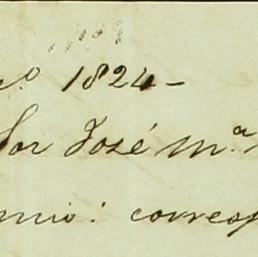 no 1824-
Sor José m.a
mio: corresp